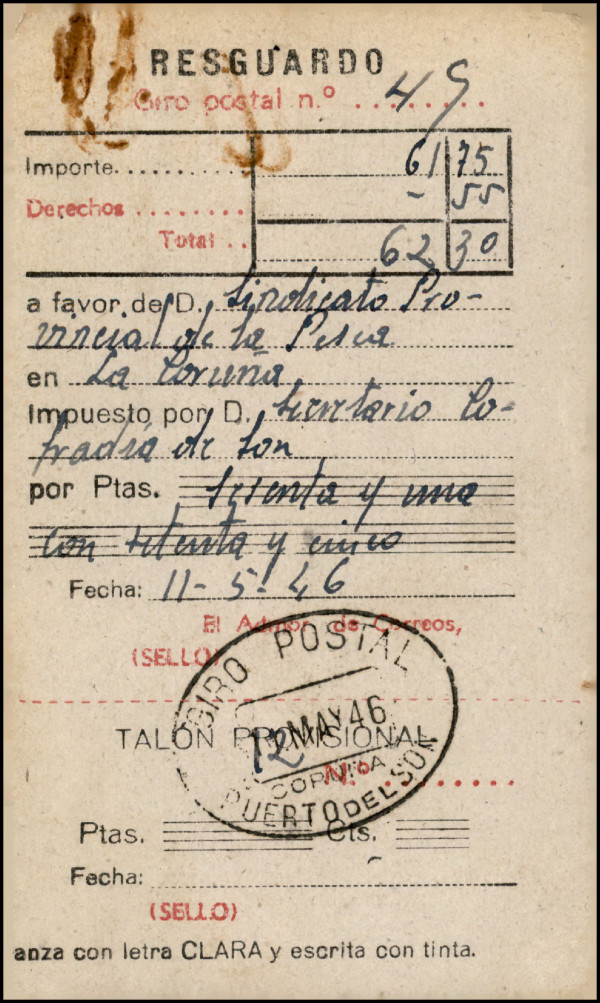 RESGUARDO
Giro postal n.º 45
Importe 61 75
Derechos - 55
Total 62 30
a favor de D. Sindicato Pro-
vincial de la Pesca
en La Coruña
Impuesto por D. Secretario Co-
fradía de Son
por Ptas. sesenta y una
con setenta y cinco
Fecha: 11-5-46
El Admor. de Correos,
(SELLO)
GIRO POSTAL
12 MAY 46
CORUÑA
PUERTO DEL SON
TALÓN PROVISIONAL
N.º
Ptas. Cts.
Fecha:
(SELLO)
anza con letra CLARA y escrita con tinta.